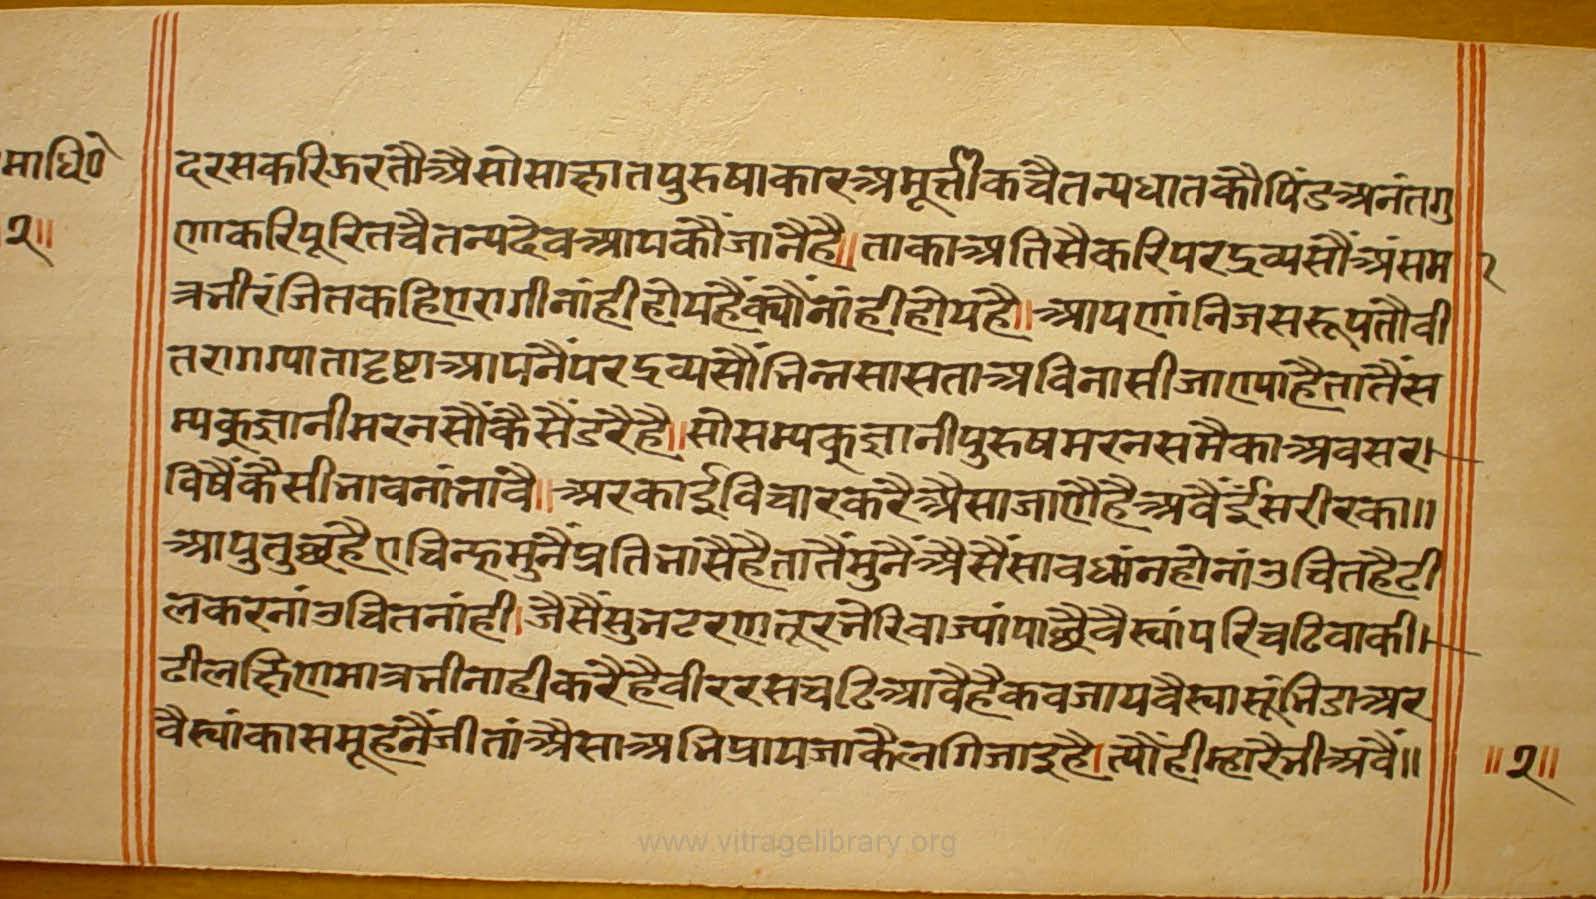 माधि०
२॥
दरसकरिऊरतौऔसोसाक्षातपुरुषाकारअमूर्त्तीकचैतन्यधातकौपिंडअनंतगु
णाकरिपूरितचैतन्यदेवआपकौंजांनैहै॥ताकाअतिसैकरिपरद्रव्यसौंअंसम
२
त्रभीरंजितकहिएरागीनांहीहोयहैंक्यौंनांहीहोयहै॥आपणांनिजसरूपतौवी
तरागग्यातादृष्टाआपनैंपरद्रव्यसौंभिन्नसासताअविनासीजाण्याहैतातैंस
म्यक्ज्ञानीमरनसौंकैसैंडरैहै॥सोसम्यक्ज्ञानीपुरुषमरनसमैकाअवसर।
विषैंकैसीभावनांभांवै॥अरकाईविचारकरैऔसाजाणैहैअवैंईंसरीरका॥
आपुतुछहैएचिन्हमुनैंप्रतिभासैहैतातैंमुनैंऔसैंसावधांनहोनांउचितहैढी
लकरनांउचितनांही।जैसैंसुभटरणतूरभेरिवाज्यांपाछैवैस्यांपरिचढिवाकी।
ढीलक्षिणमात्रभीनाहीकरैहैवीररसचढिआवैहैकवजायवैस्यासूंभिडाअर
वैस्यांकासमूहनैंजीतांऔसाअभिप्रायजाकैलगिजाइहै।त्यौंहीम्हारैभीअवैं॥
॥२॥
www.vitragelibrary.org